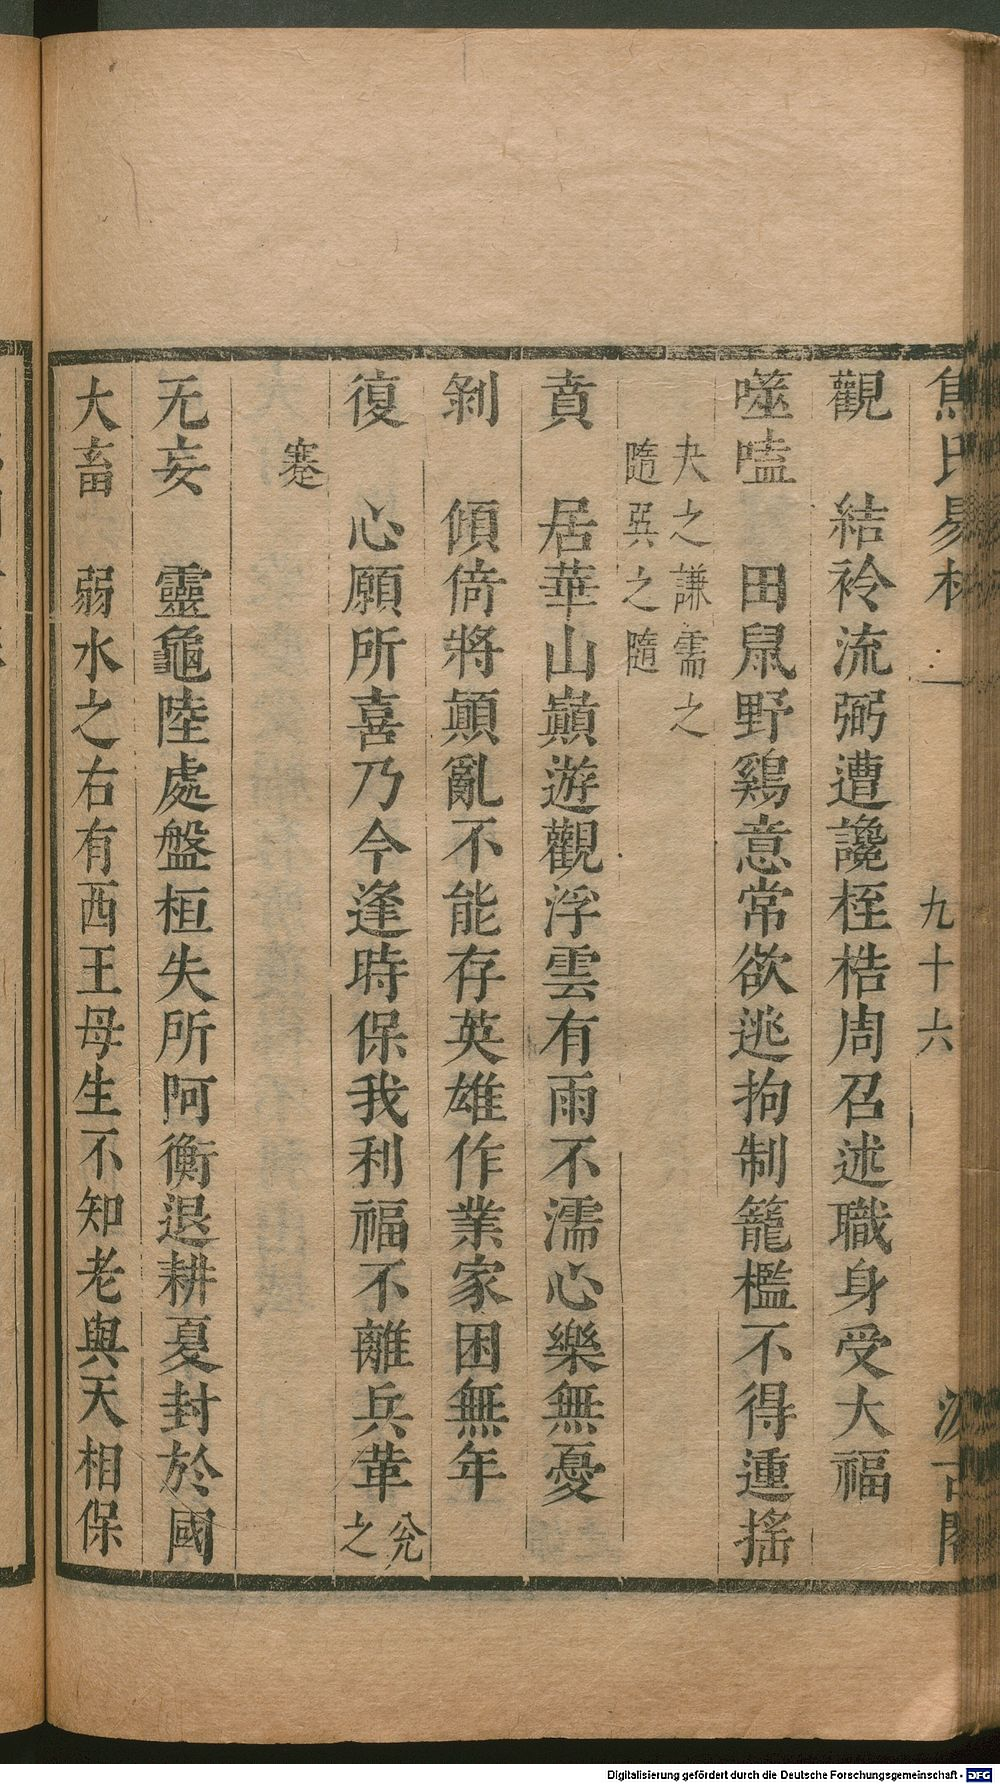 焦氏易林 一 九十六 汲古閣
觀 結衿流粥遭讒桎梏周召述職身受大福
噬嗑 田鼠野鷄意常欲逃拘制籠檻不得連搖
夬之謙需之
隨巽之隨
賁 居華山巔遊觀浮雲有雨不濡心樂無憂
剝 傾倚將顛亂不能存英雄作業家困無年
復 心願所喜乃今逢時保我利福不離兵革 兊之
蹇
无妄 靈龜陸處盤桓失所阿衡退耕夏封於國
大畜 弱水之右有西王母生不知老與天相保
Digitalisierung gefördert durch die Deutsche Forschungsgemeinschaft - DFG